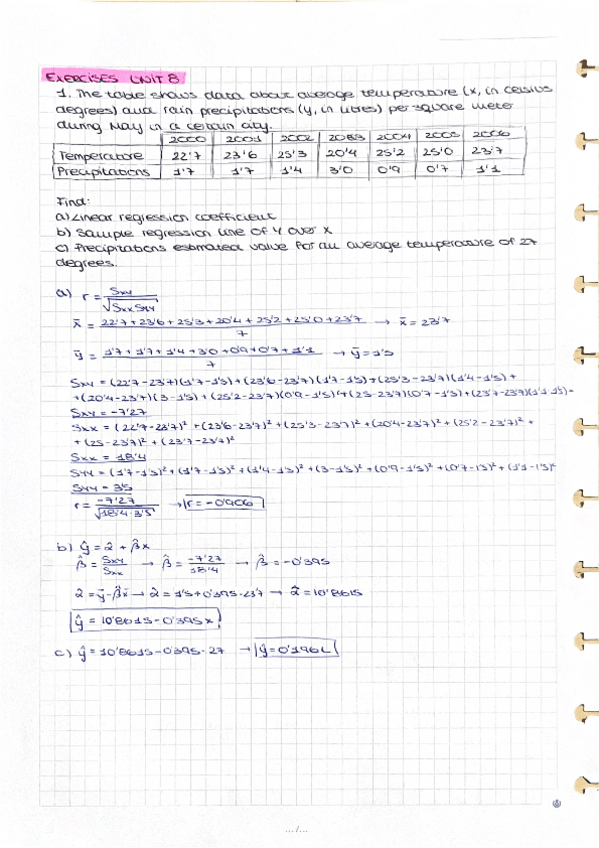 EXERCISES UNIT 8
1. The table shows data about average temperature (x, in celsius
degrees) and rain precipitations (y, in litres) per square meter
during May in a certain city.
2000 2001 2002 2003 2004 2005 2006
Temperature 22'7 23'6 25'3 20'4 25'2 25'0 23'7
Precipitations 1'7 1'7 1'4 3'0 0'9 0'7 1'1
Find:
a) Linear regression coefficient
b) Sample regression line of Y over X
c) Precipitations estimated value for an average temperature of 27
degrees.
a) r = Sxy / √SxxSyy
x̄ = 22'7+23'6+25'3+20'4+25'2+25'0+23'7 / 7 → x̄ = 23'7
ȳ = 1'7+1'7+1'4+3'0+0'9+0'7+1'1 / 7 → ȳ = 1'5
Sxy = (22'7-23'7)(1'7-1'5)+(23'6-23'7)(1'7-1'5)+(25'3-23'7)(1'4-1'5)+
+(20'4-23'7)(3-1'5)+(25'2-23'7)(0'9-1'5)+(25-23'7)(0'7-1'5)+(23'7-23'7)(1'1-1'5)=
Sxy = -7'27
Sxx = (22'7-23'7)² +(23'6-23'7)² +(25'3-23'7)² +(20'4-23'7)² +(25'2-23'7)² +
+(25-23'7)² +(23'7-23'7)²
Sxx = 18'4
Syy = (1'7-1'5)² +(1'7-1'5)² +(1'4-1'5)² +(3-1'5)² +(0'9-1'5)² +(0'7-1'5)² +(1'1-1'5)²
Syy = 3'5
r = -7'27 / √18'4·3'5 → r = -0'906
b) ŷ = α̂ + β̂x
β̂ = Sxy / Sxx → β̂ = -7'27 / 18'4 → β̂ = -0'395
α̂ = ȳ-β̂x̄ → α̂ = 1'5+0'395·23'7 → α̂ = 10'8615
ŷ = 10'8615-0'395x
c) ŷ = 10'8615-0'395·27 → ŷ = 0'196L
.../...